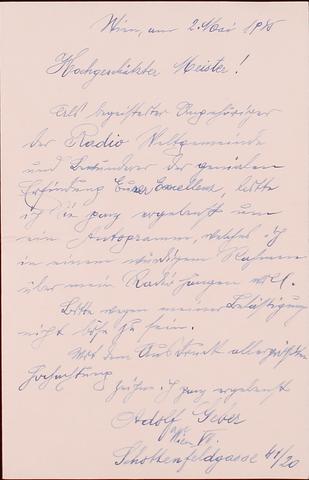 Wien, am 2. Mai 19
Hochgeschätzter Meister!
Als begeisterter Angehöriger
der Radio Weltgemeinde
und Bewunderer der genialen
Erfindung Eurer Excellenz, bitte
ich Sie ganz ergebenst um
ein Autogramm, welches ich
in einem würdigen Rahmen
über mein Radio hängen will.
Bitte wegen meiner Belästigung
nicht böse zu sein.
Mit dem Ausdruck allergrößter
Hochachtung
zeichne ich ganz ergebenst
Adolf
Wien VII.
Schottenfeldgasse 41/20